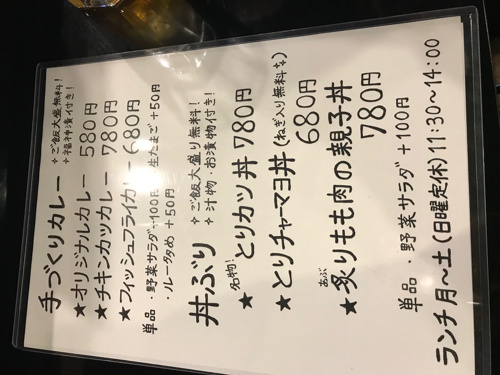 手づくりカレー ✧ご飯大盛無料!
✧福神漬付き!
★オリジナルカレー 580円
★チキンカツカレー 780円
★フィッシュフライカレー 680円
単品・野菜サラダ+100円・生たまご+50円
・ルー多め+50円
丼ぶり ✧ご飯大盛り無料!
✧汁物・お漬物付き!
名物!
★とりカツ丼 780円
★とりチャーマヨ丼(ねぎ入り無料な)
680円
あぶ
★炙りもも肉の親子丼
780円
単品・野菜サラダ +100円
ランチ月〜土(日曜定休)11:30〜14:00